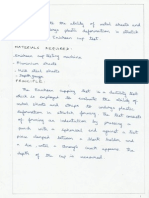 the ability of metal sheets and
plastic deformation in stretch
Erichsen cup test.
MATERIALS REQUIRED:
Erichsen cup testing machine
Aluminium sheets
Mild steel sheets
Depth gauge.
PRINCIPLE:
The Erichsen cupping test is a ductility test
which is employed to evaluate the ability of
metal sheets and strips to undergo plastic
deformation in stretch forming. The test consists
of forming an indentation by pressing a
punch with a spherical end against a test
piece clamped between a blank holder and
a die, until a through crack appears. The
depth of the cup is measured.